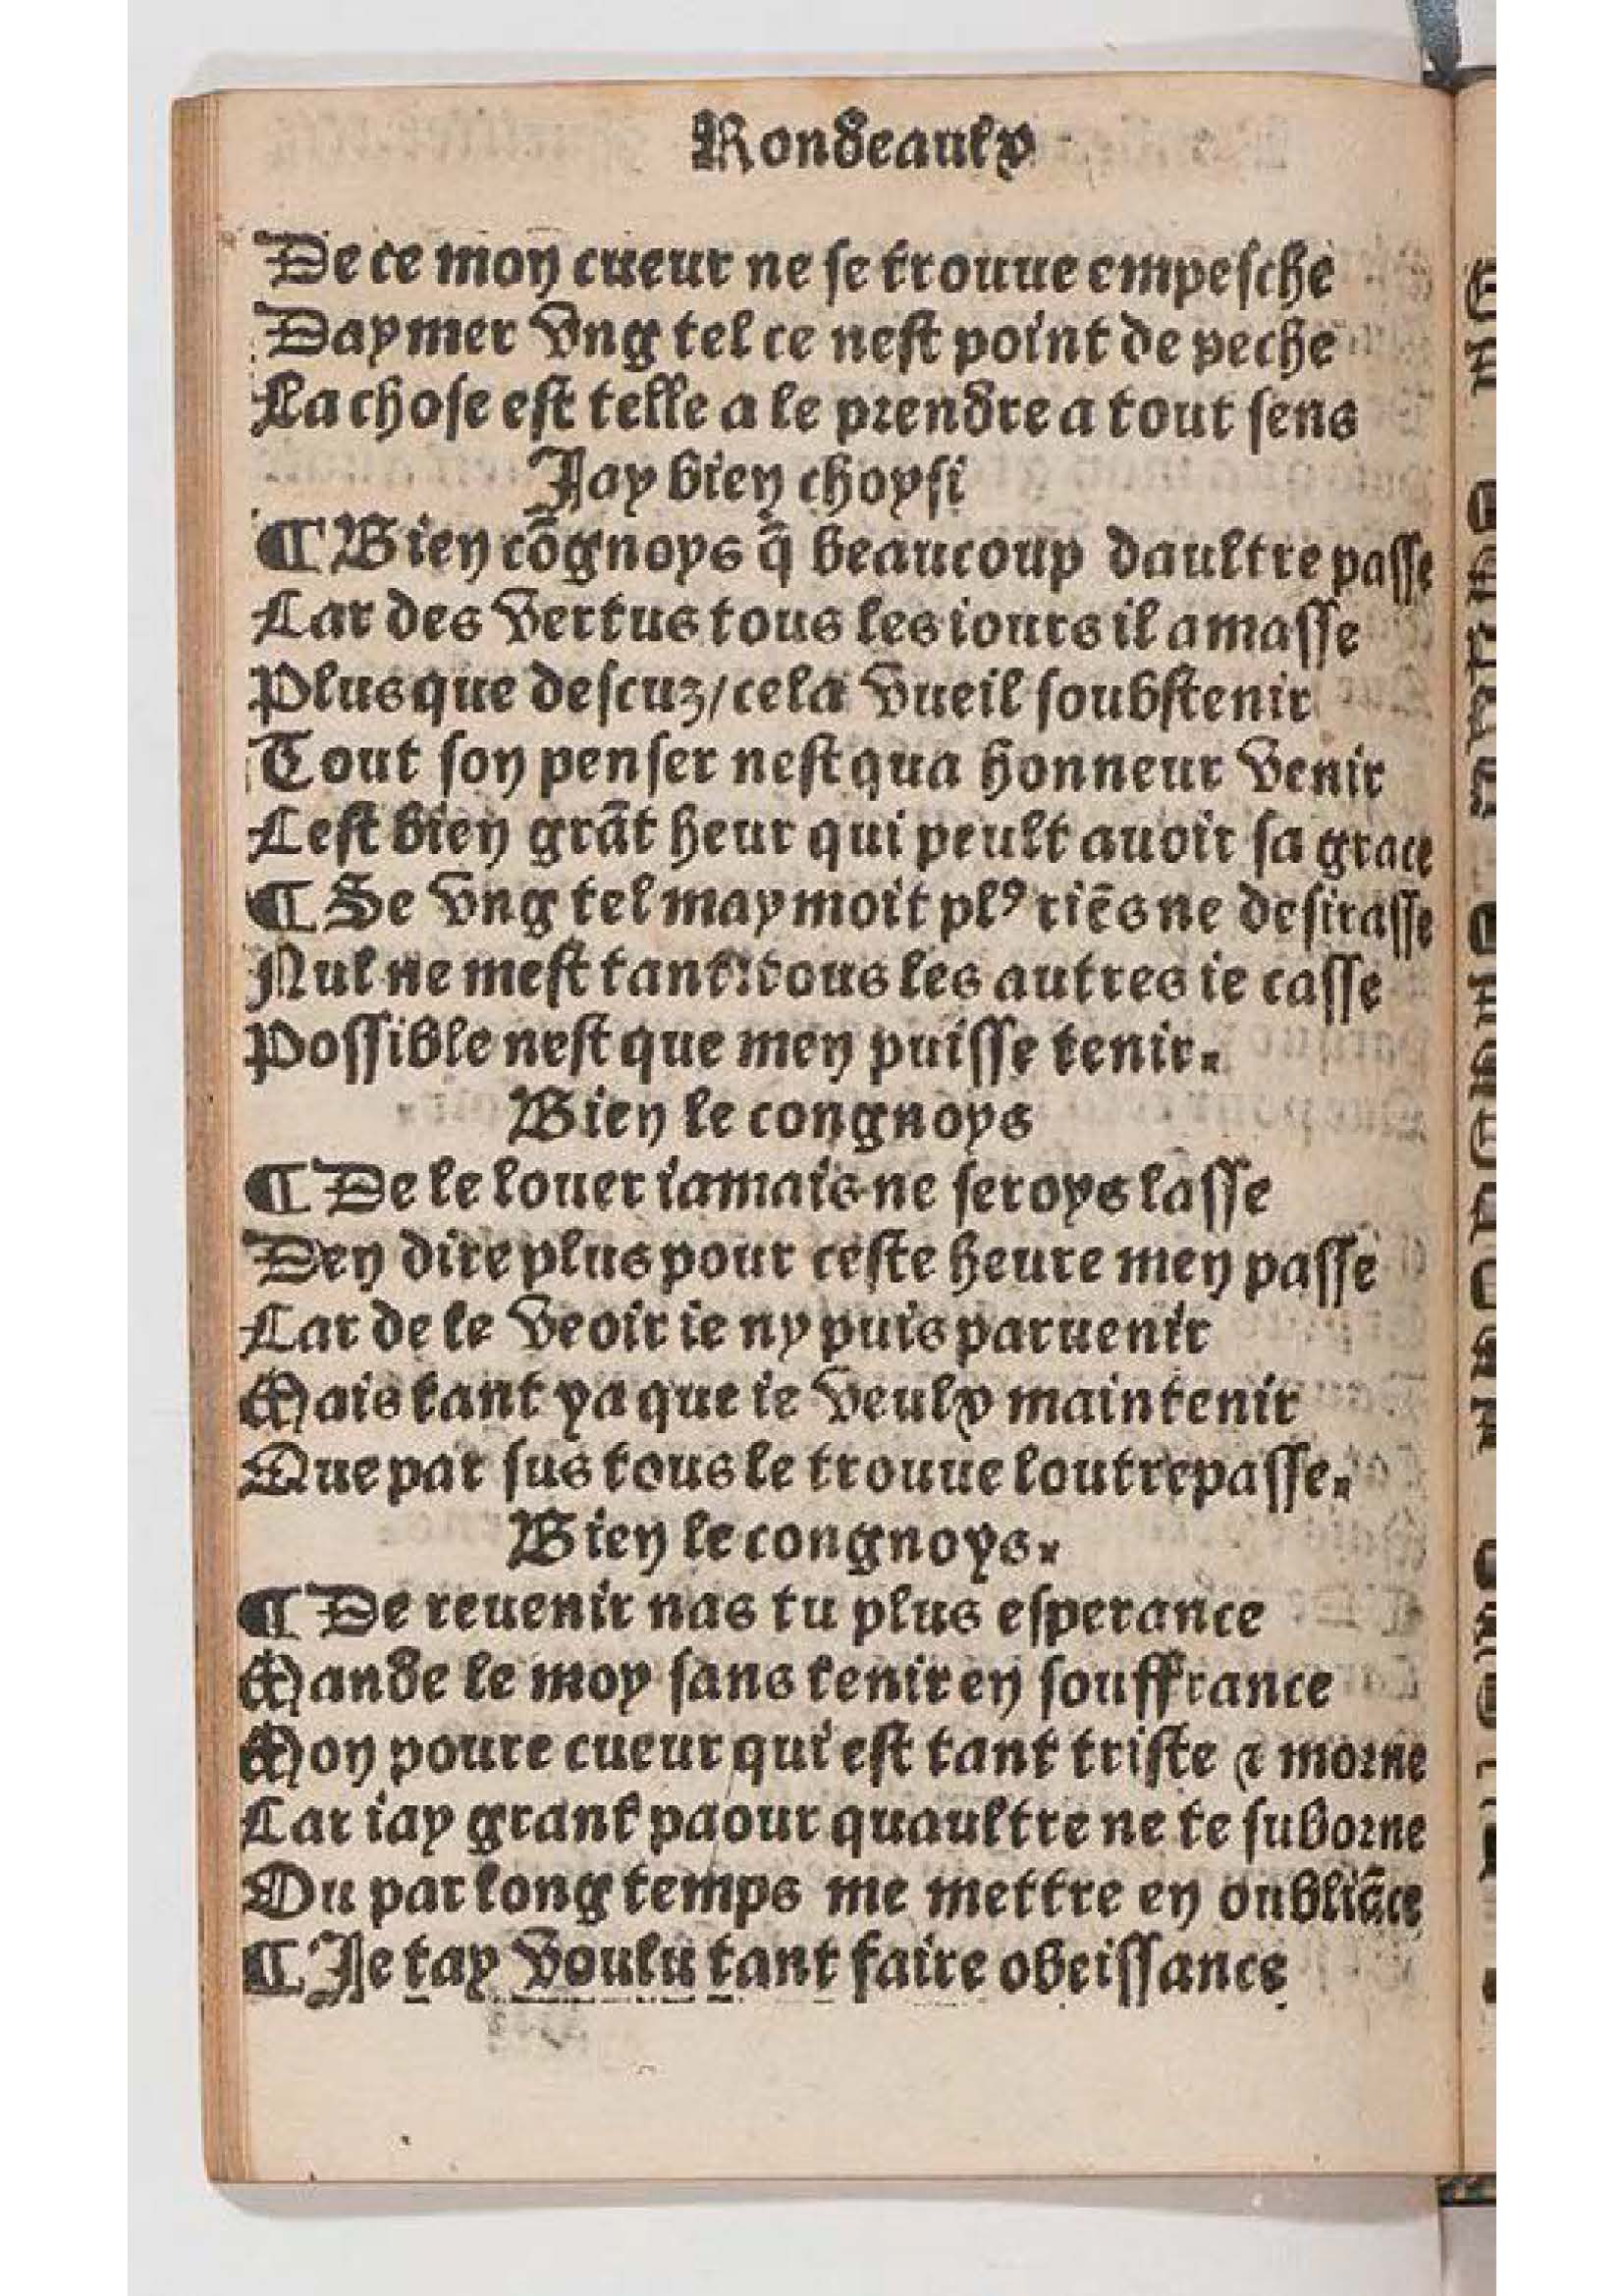 Rondeaulx
De ce mon cueur ne se trouue empesche
Daymer vng tel ce nest point de peche
La chose est telle a le prendre a tout sens
Jay bien choysi
¶ Bien cõgnoys q̃ beaucoup daultre passe
Car des vertus tous les iours il amasse
Plus que descuz/ cela vueil soubstenir
Tout son penser nest qua honneur venir
Cest bien grãt heur qui peult auoir sa grace
¶ Se vng tel maymoit plꝰ riẽs ne desirasse
Nul ne mest tant: tous les autres ie casse
Possible nest que men puisse tenir.
Bien le congnoys
¶ De le louer iamais ne seroys lasse
Den dire plus pour ceste heure men passe
Car de le veoir ie ny puis paruenir
Mais tant ya que ie veulx maintenir
Que par sus tous le trouue loutrepasse.
Bien le congnoys.
¶ De reuenir nas tu plus esperance
Mande le moy sans tenir en souffrance
Mon poure cueur qui est tant triste & morne
Car iay grant paour quaultre ne te suborne
Ou par long temps me mettre en oubliãce
¶ Je tay voulu tant faire obeissance